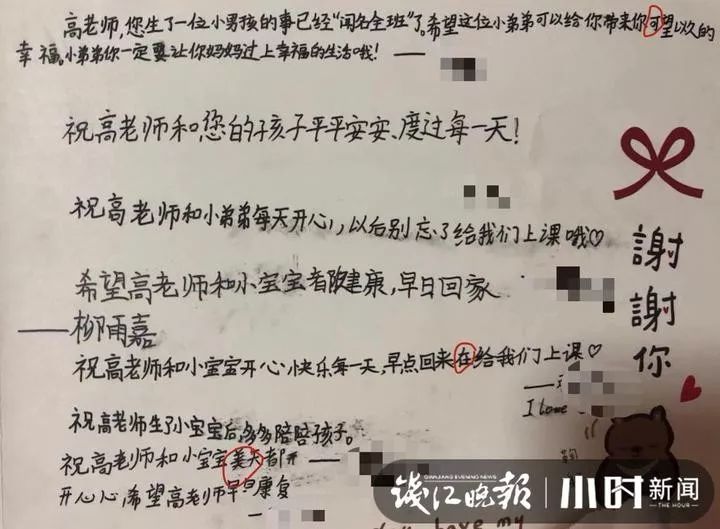 高老师,您生了一位小男孩的事已经“闻名全班”了。希望这位小弟弟可以给你带来你可望以久的
幸福。小弟弟你一定要让你妈妈过上幸福的生活哦!——
祝高老师和您的孩子平平安安、度过每一天!
祝高老师和小弟弟每天开心,以后别忘了给我们上课哦♡
希望高老师和小宝宝都健康,早日回家
——柳雨嘉
祝高老师和小宝宝开心、快乐每一天,早点回来在给我们上课♡
I love
祝高老师生了小宝宝后,多多陪陪孩子。
祝高老师和小宝宝美天都开——
开心心,希望高老师早日康复
謝謝你
钱江晚报
QIANJIANG EVENING NEWS
小时新闻
THE HOUR
love my